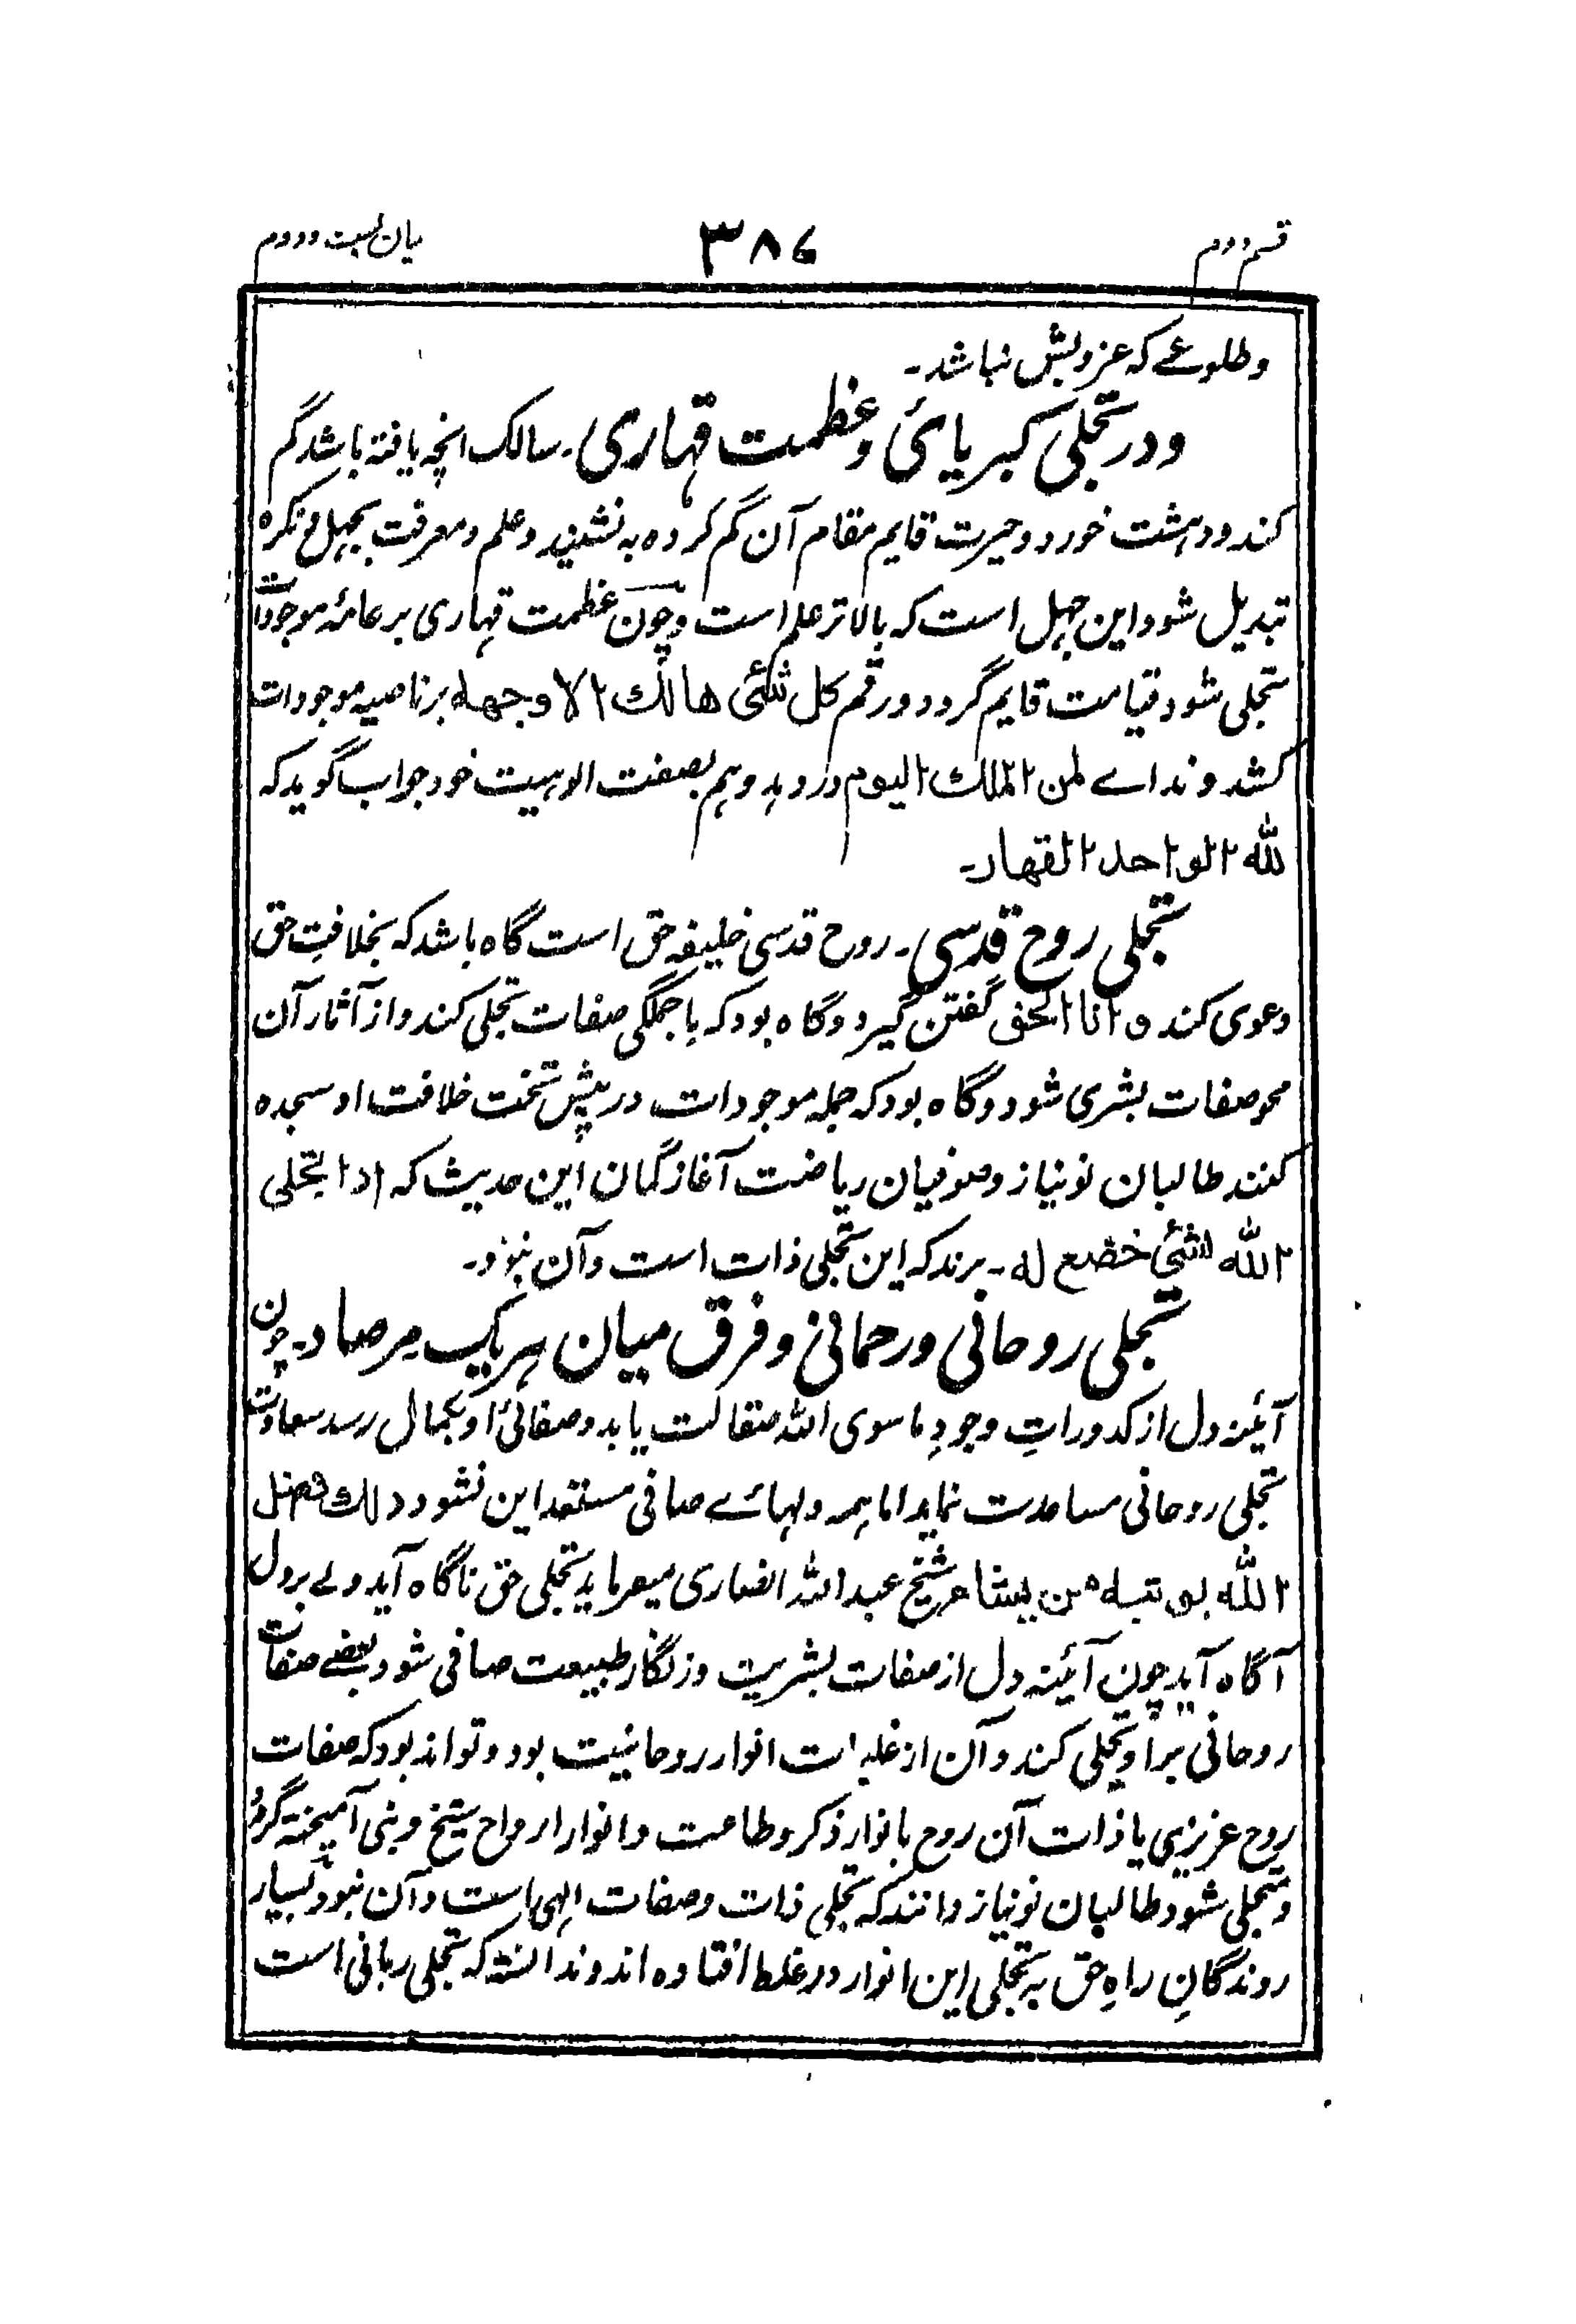 قسم دوم ۳۸۶ بیان بست و دوم
وطلوعے که غروبش نباشد۔
ودر تجلی کبریائی وعظمت قهاری۔ سالک انچه یافته باشد گم
کند ودهشت خورد وحیرت قایم مقام آن گم کرده به نشیند وعلم ومعرفت بجهل ونکره
تبدیل شود این جهل است که بالاتر علم است وچون عظمت قهاری بر عامهٔ موجودات
متجلی شود قیامت قایم گردد ورقم کل شئی هالك الا وجهه بر ناصیه موجودات
کشد ونداے لمن الملك الیوم در دهد وهم بصفت الوهیت خود جواب گوید که
لله الواحد القهار۔
تجلی روح قدسی۔ روح قدسی خلیفه حق است گاه باشد که بخلافتِ حق
دعوی کند و انا الحق گفتن گیرد وگاه بود که با جملگی صفات تجلی کند واز آثار آن
محو صفات بشری شود وگاه بود که جمله موجودات در پیش تخت خلافت او سجده
کنند طالبان نو نیاز وصوفیان ریاضت آغاز گمان این حدیث که اذا تجلی
الله لشئی خضع له۔ برند که این تجلی ذات است وآن نبود۔
تجلی روحانی ورحمانی وفرق میان هر یک مرصاد۔ چون
آئینه دل از کدوراتِ وجودِ ما سوی الله صقالت یابد وصفائی او بکمال رسد سعادت
تجلی روحانی مساعدت نماید اما همه دلهائے صافی مستعد این نشود ذلك فضل
الله یوتیه من یشاء شیخ عبد الله انصاری میفرماید تجلی حق ناگاه آید ولے بر دل
آگاه آید چون آئینه دل از صفات بشریت وزنگار طبیعت صافی شود بعضے صفات
روحانی بر او تجلی کند وآن از غلبات انوار روحانیت بود وتواند بود که صفات
روح عزیزی یا ذات آن روح با نوار ذکر وطاعت وانوار ارواح شیخ ونبی آمیخته گردد
ومتجلی شود طالبان نو نیاز دانند که تجلی ذات وصفات الهی است وآن نبود بسیار
روندگانِ راهِ حق به تجلی این انوار در غلط افتاده اند ودانسته که تجلی ربانی است